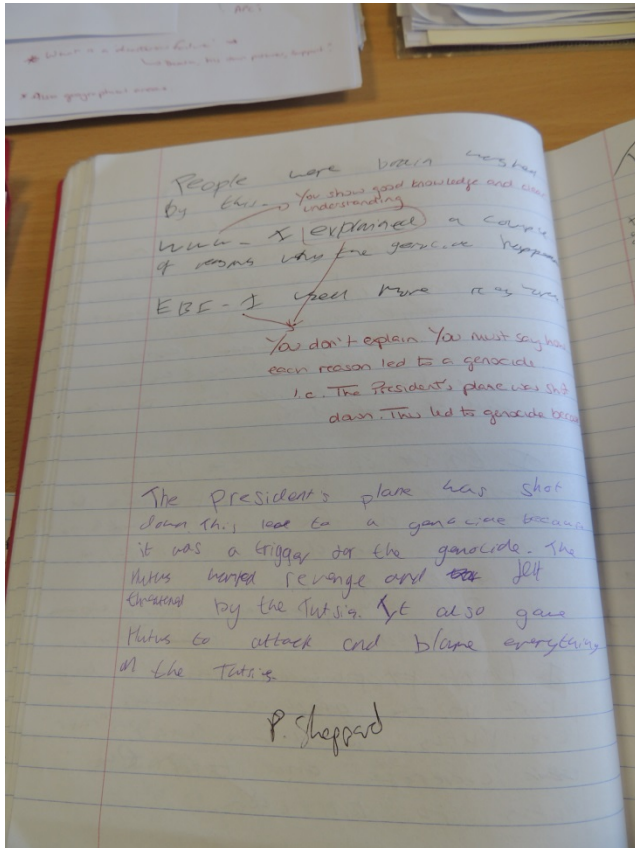 (AAL)
* What is a
* Now geographical
People were brain washed
by this. You show good knowledge and clear
understanding
WWW - I explained a couple
of reasons why the genocide happened
EBI - I used more reasons
You don't explain. You must say how
each reason led to a genocide
i.e. The President's plane was shot
down. This led to genocide because
The president's plane was shot
down. This lead to a genocide because
it was a trigger for the genocide. The
Hutus wanted revenge and felt
threatened by the Tutsis. It also gave
Hutus to attack and blame everything
on the Tutsis
P. Sheppard